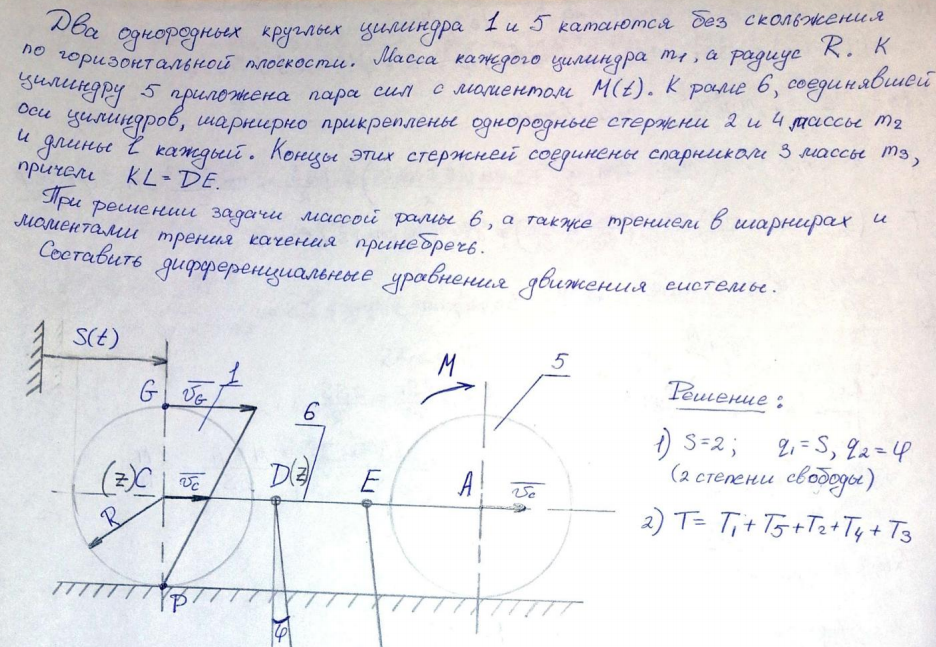 Два однородных круглых цилиндра 1 и 5 катаются без скольжения
по горизонтальной плоскости. Масса каждого цилиндра m₁, а радиус R. К
цилиндру 5 приложена пара сил с моментом M(t). К раме 6, соединявшей
оси цилиндров, шарнирно прикреплены однородные стержни 2 и 4 массы m₂
и длины l каждый. Концы этих стержней соединены спарником 3 массы m₃,
причем KL = DE.
При решении задачи массой рамы 6, а также трением в шарнирах и
моментами трения качения принебречь.
Составить дифференциальные уравнения движения системы.
S(t)
G
v̄G
1
6
M
5
(z)C
v̄c
D(z)
E
A
v̄c
R
P
φ
Решение:
1) S=2; q₁=S, q₂=φ
(2 степени свободы)
2) T= T₁+T₅+T₂+T₄+T₃